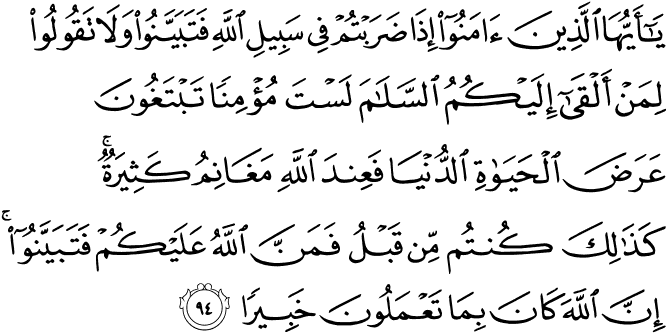 يَٰٓأَيُّهَا ٱلَّذِينَ ءَامَنُوٓا۟ إِذَا ضَرَبْتُمْ فِى سَبِيلِ ٱللَّهِ فَتَبَيَّنُوا۟ وَلَا تَقُولُوا۟
لِمَنْ أَلْقَىٰٓ إِلَيْكُمُ ٱلسَّلَٰمَ لَسْتَ مُؤْمِنًا تَبْتَغُونَ
عَرَضَ ٱلْحَيَوٰةِ ٱلدُّنْيَا فَعِندَ ٱللَّهِ مَغَانِمُ كَثِيرَةٌ ۚ
كَذَٰلِكَ كُنتُم مِّن قَبْلُ فَمَنَّ ٱللَّهُ عَلَيْكُمْ فَتَبَيَّنُوٓا۟ ۚ
إِنَّ ٱللَّهَ كَانَ بِمَا تَعْمَلُونَ خَبِيرًا ٩٤